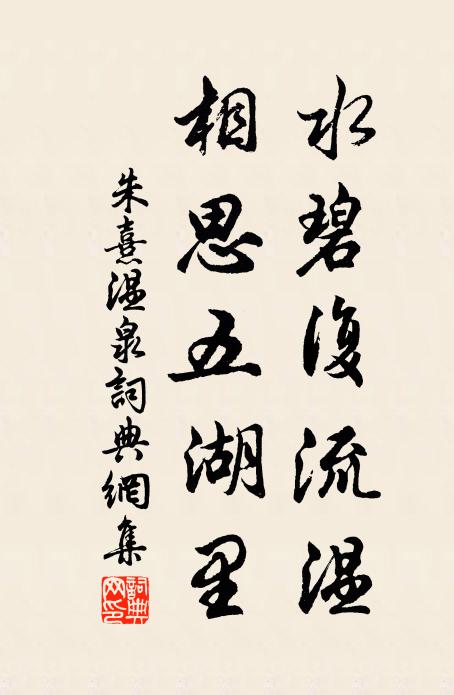 水碧復流温
相思五湖里
朱熹温泉詞典網集
詞典網印